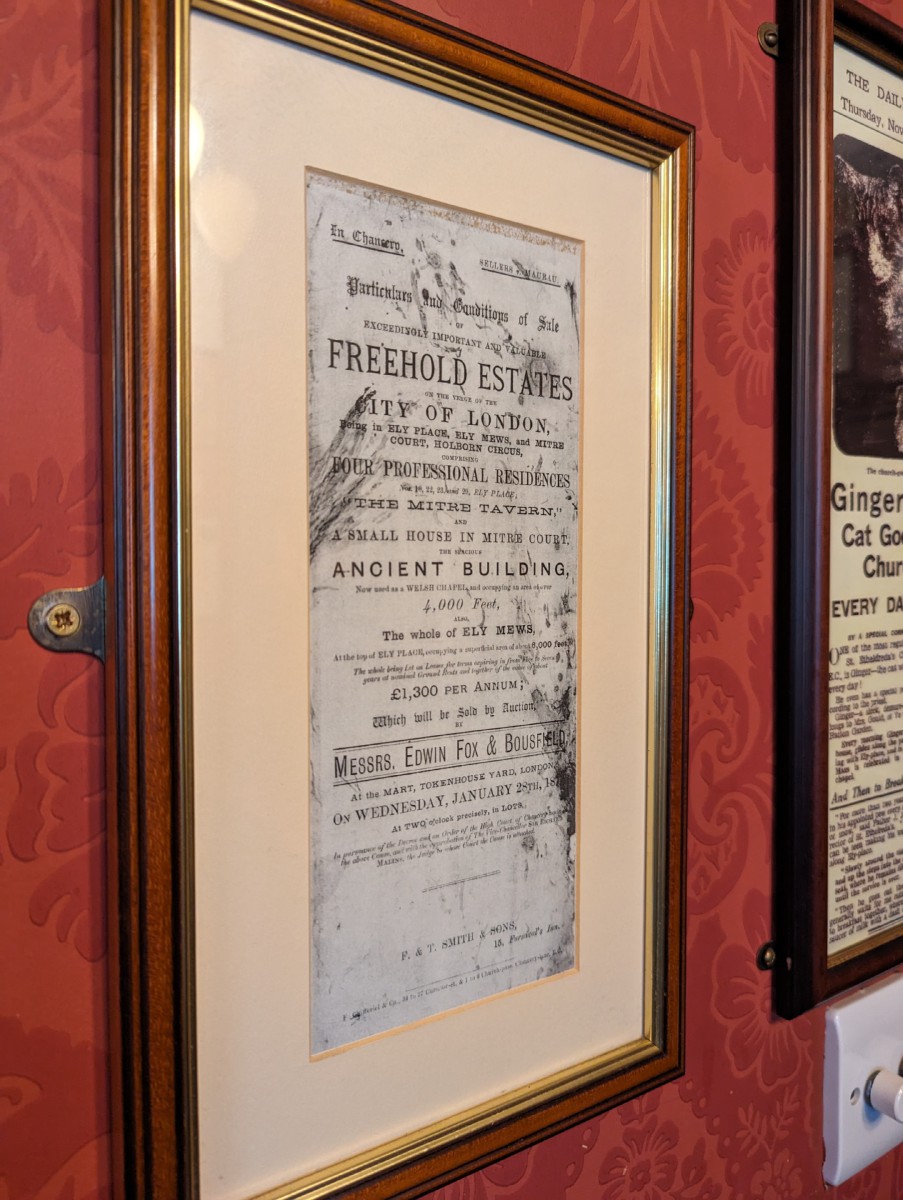 In Chancery.
SELLERS v. MAURAU.
Particulars and Conditions of Sale
OF
EXCEEDINGLY IMPORTANT AND VALUABLE
FREEHOLD ESTATES
ON THE VERGE OF THE
CITY OF LONDON,
Being in ELY PLACE, ELY MEWS, and MITRE
COURT, HOLBORN CIRCUS,
COMPRISING
FOUR PROFESSIONAL RESIDENCES
22, 23, and 29, ELY PLACE,
"THE MITRE TAVERN,"
AND
A SMALL HOUSE IN MITRE COURT,
THE SPACIOUS
ANCIENT BUILDING,
Now used as a WELSH CHAPEL, and occupying an area of over
4,000 Feet,
ALSO,
The whole of ELY MEWS,
At the top of ELY PLACE, occupying a superficial area of about 6,000 feet
The whole being Let on Leases for terms expiring in from
years at nominal Ground Rents and together of the value of about
£1,300 PER ANNUM;
Which will be Sold by Auction,
BY
MESSRS. EDWIN FOX & BOUSFIELD,
At the MART, TOKENHOUSE YARD, LONDON,
On WEDNESDAY, JANUARY 28TH, 18
At TWO o'clock precisely, in LOTS,
In pursuance of the Decree and an Order of the High Court of Chancery
the above Cause, and with the approbation of The Vice-Chancellor SIR
MALINS, the Judge to whose Court the Cause is attached.
F. & T. SMITH & SONS,
15, Furnival's Inn.
THE DAIL
Thursday, Nov
The church-
Ginger
Cat Goe
Chur
EVERY DA
BY A SPECIAL COR
ONE of the most regu
St. Etheldreda's
E.C., is Ginger—the cat w
every day!
He even has a special
cording to the priest.
Ginger—a sleek,
longs to Mrs. Gould, at
Hatton Garden.
Every morning Ginger
Mass is celebrated in
chapel.
And Then to Break
"For more than two years